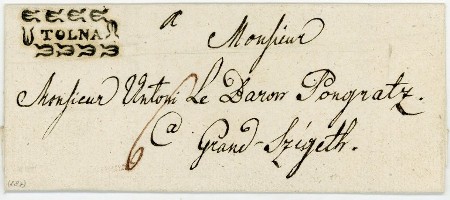 TOLNA
a
Monsieur
Monsieur Antoni Le Baron Pongratz.
6
a
Grand-Szigeth.